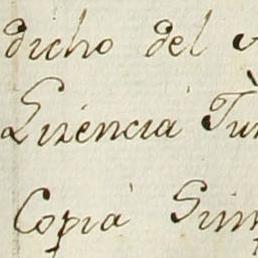 dicho del
Lizencia
Copia Sim